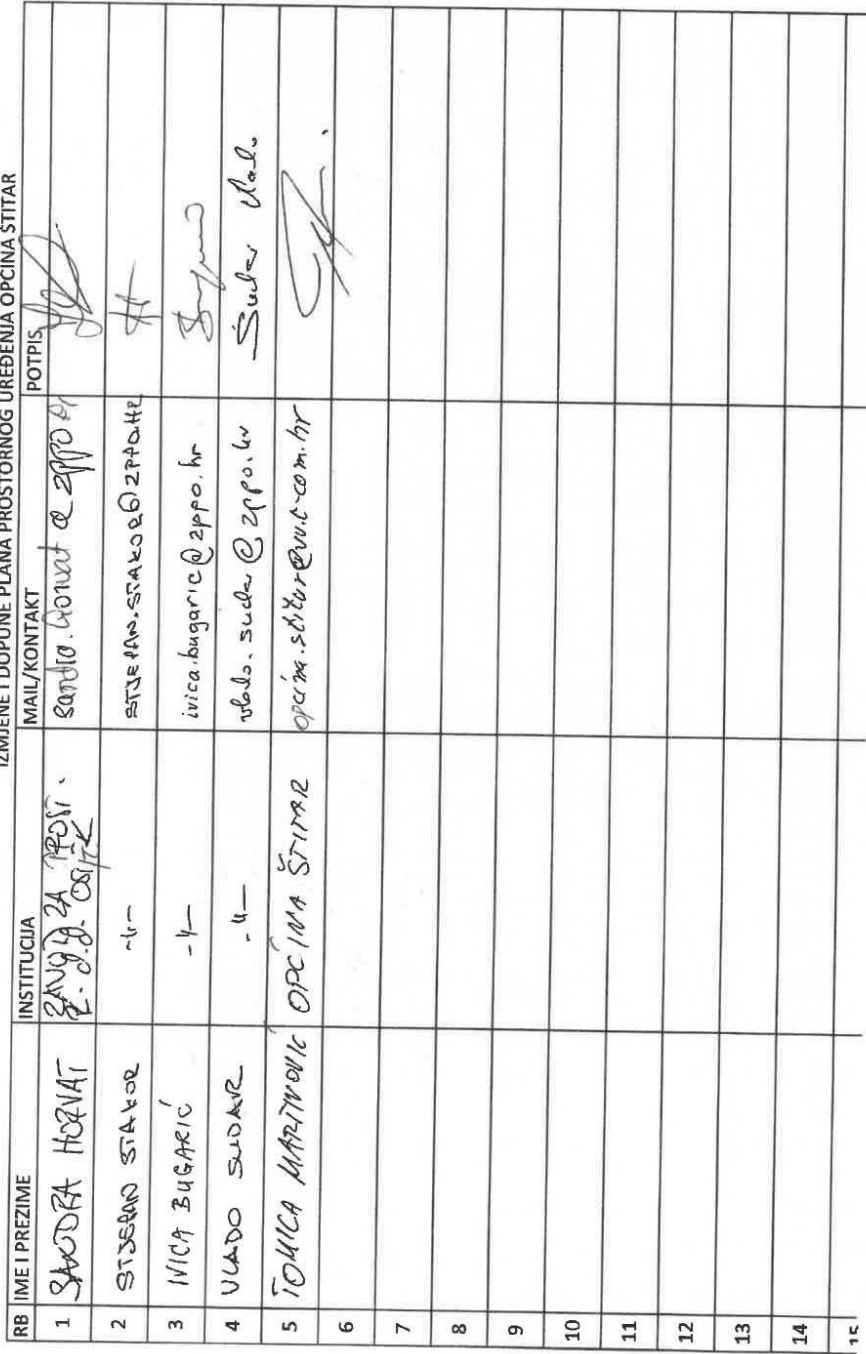 IZMJENE I DOPUNE PLANA PROSTORNOG UREĐENJA OPĆINA ŠTITAR
RB IME I PREZIME INSTITUCIJA MAIL/KONTAKT POTPIS
1 SANDRA HORVAT ZAVOD ZA PROST. OSIJEK sandra.horvat@zppo.hr
2 STJEPAN STAKOR -॥- STJEPAN.STAKOR@ZPPO.HR
3 IVICA BUGARIĆ -॥- ivica.bugaric@zppo.hr
4 VLADO SUDAR -॥- vlado.sudar@zppo.hr Sudar Vlado
5 TOMICA MARTINOVIĆ OPĆINA ŠTITAR opcina.stitar@vu.t-com.hr
6
7
8
9
10
11
12
13
14
15